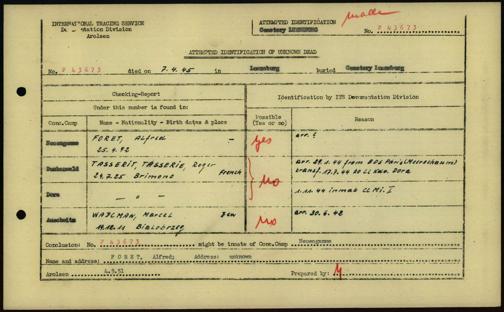 INTERNATIONAL TRACING SERVICE
Documentation Division
Arolsen
ATTEMPTED IDENTIFICATION
Cemetery
No. F 43673
ATTEMPTED IDENTIFICATION OF UNKNOWN DEAD
No. F 43673 died on 7.4.45 in Luneburg Buried Cemetery Luneburg
Checking-Report
Under this number is found in:
Identification by ITS Documentation Division
Conc.Camp
Name - Nationality - Birth dates & place
Possible
(Yes or no)
Reason
Neuengamme
FORET, Alfred -
25.4.92
yes
arr. ?
Buchenwald
TASSERIT, TASSERIE, Roger French
24.7.25 Brimont
no
arr. 29.1.44 from BDS Paris
transf. 17.2.44 to
Dora
— " —
1.11.44 inmate CC Mi. I
Auschwitz
WAJCMAN, Marcel Jew
19.12.11 Bialobrzeg
no
arr. 30.4.42
Conclusion: No. F 43673 might be inmate of Conc.Camp Neuengamme
Name and address: FORET, Alfred; Address: unknown
Arolsen 4.9.51
Prepared by: